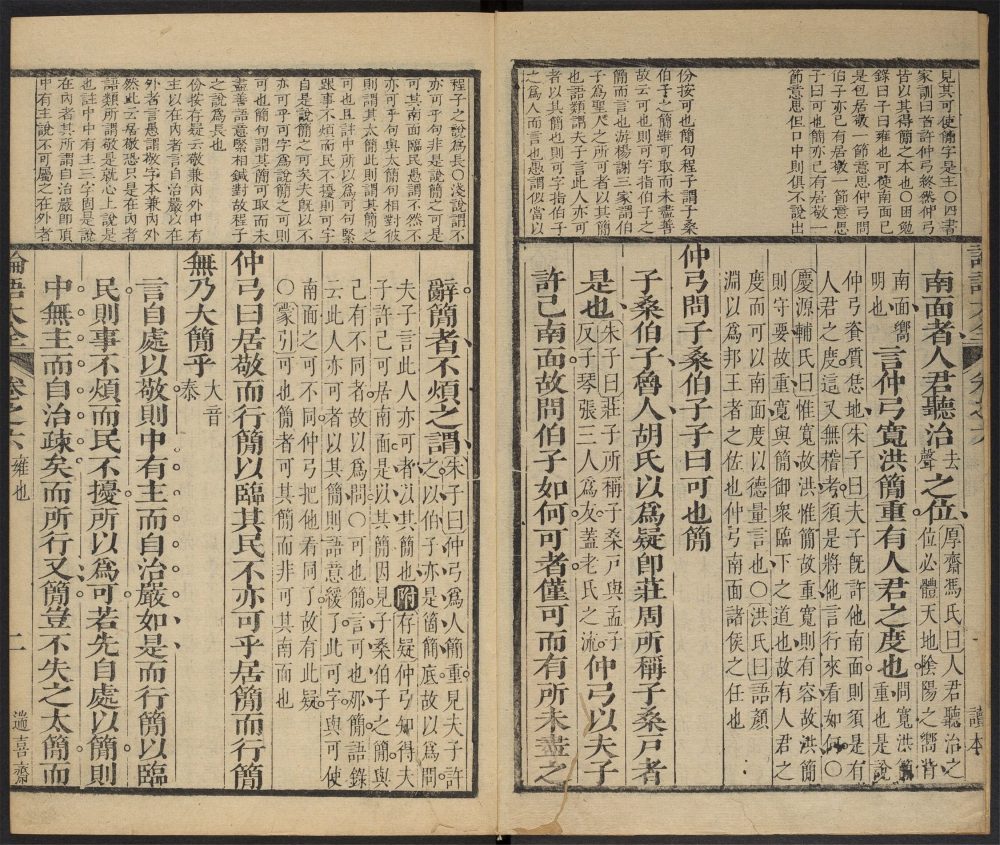 見其可使簡字是主○四書
家訓曰首許仲弓終然仲弓
皆以其得簡之本也○困勉
錄曰子曰雍也可使南面已
是包居敬一節意思仲弓問
伯子亦已有居敬一節意思
子曰可也簡亦已有居敬一
節意思但口中則俱不說出
份按可也簡句程子謂子桑
伯子之簡雖可取而未盡善
故云可也則可字指伯子之
簡而言也游楊謝三家謂伯
子為聖人之所可者以其簡
也語類謂夫子言此人亦可
之為人而言也愚謂似當以
南面者人君聽治去聲之位厚齋馮氏曰人君聽治之
位必體天地陰陽之嚮背
南面嚮
明也言仲弓寬洪簡重有人君之度也問寬洪簡
重也是說
仲弓資質恁地朱子曰夫子旣許他南面則須是有
人君之度這又無稽考須是將他言行來看如何○
慶源輔氏曰惟寬故洪惟簡故重寬則有容故洪簡
則守要故重寬與簡御衆臨下之道也故有人君之
度而可以南面度以德量言也○洪氏曰語顏
淵以為邦王者之佐也仲弓南面諸侯之任也
仲弓問子桑伯子子曰可也簡
子桑伯子魯人胡氏以為疑卽莊周所稱子桑戶者
是也朱子曰莊子所稱子桑戶與孟子
反子琴張三人為友蓋老氏之流仲弓以夫子
許己南面故問伯子如何可者僅可而有所未盡之
程子之說為長○淺說謂不
亦可乎句非是說簡之可是
可其南面臨民愚謂不然不
亦可乎句與太簡句相對彼
則謂其太簡此則謂其簡之
可也且註中所以為可句緊
跟事不煩而民不擾則可字
自是說簡之可矣夫旣以不
亦可乎可字為說簡之可則
可也簡句謂其簡可取而未
盡善語意緊相鍼對故程子
之說為長也
份按存疑云敬兼內外中有
主以在內者言自治嚴以在
外者言愚謂敬字本兼內外
然此云居敬恐只是在內者
語類所謂敬是就心上說是
也註中中有主三字固是說
在內者其所謂自治嚴卽頂
中有主說不可屬之在外者
辭簡者不煩之謂朱子曰仲弓為人簡重見夫子許
之以伯子亦是箇簡底故以為問
夫子言此人亦可者以其簡也附存疑仲弓知得夫
子許己可居南面是以其簡因見子桑伯子之簡與
己有不同者故以為問○可也簡言可也那簡語錄
云此人亦可者以其簡則語意緩了此可字與可使
南面之可不同仲弓把他看同了故有此疑
○蒙引可也簡者可其簡而非可其南面也
仲弓曰居敬而行簡以臨其民不亦可乎居簡而行簡
無乃大簡乎大音
泰
言自處以敬則中有主而自治嚴如是而行簡以臨
民則事不煩而民不擾所以為可若先自處以簡則
中無主而自治疎矣而所行又簡豈不失之太簡而
論語大全 卷之六 雍也 二 遄喜齋